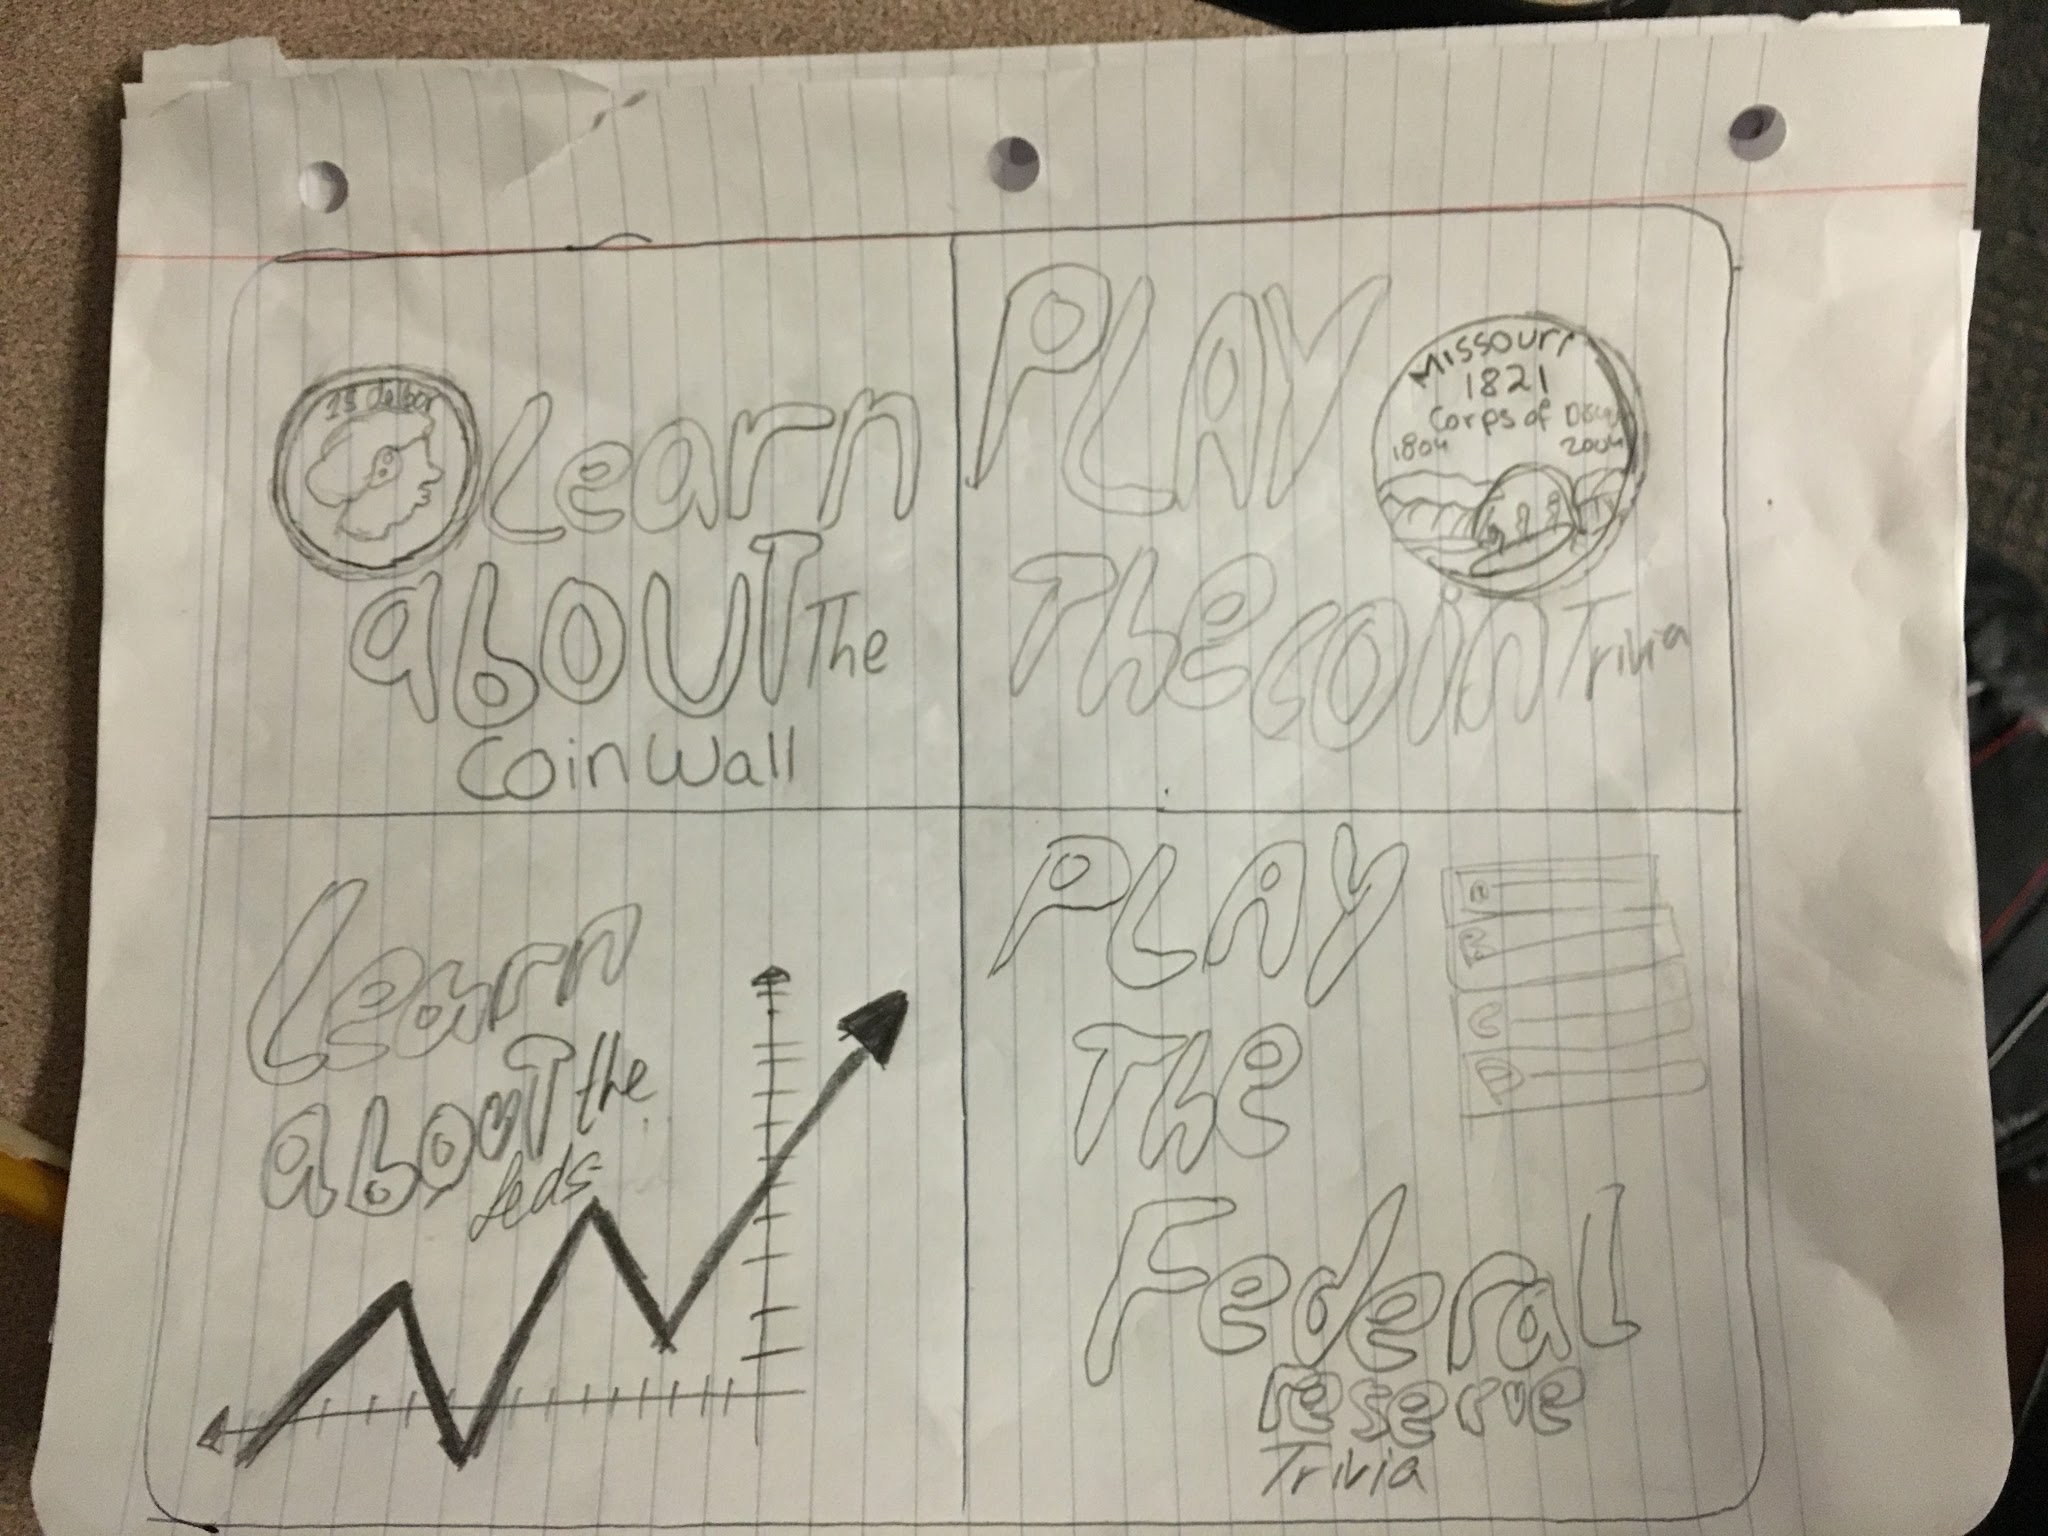 Learn
about The
Coin Wall
PLAY
The coin Trivia
Missouri
1821
Corps of
1804 2004
Learn
abouT the
feds
PLAY
The
Federal
reserve
Trivia
A
B
C
D